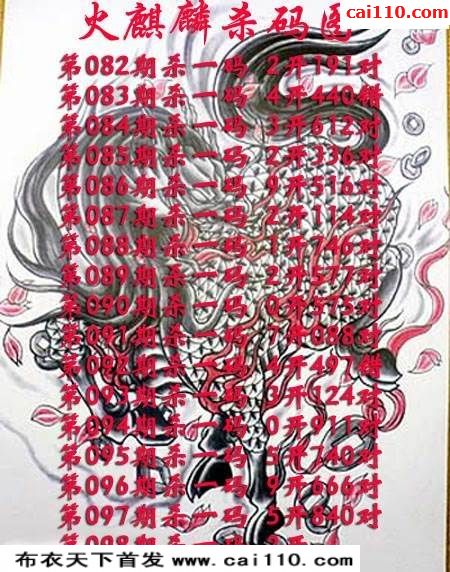 cai110.com
火麒麟杀码图
第082期杀一码 2开191对
第083期杀一码 4开440错
第084期杀一码 3开612对
第085期杀一码 2开336对
第086期杀一码 9开516对
第087期杀一码 2开114对
第088期杀一码 1开746对
第089期杀一码 2开577对
第090期杀一码 0开575对
第091期杀一码 7开088对
第092期杀一码 4开497错
第093期杀一码 3开124对
第094期杀一码 0开911对
第095期杀一码 5开740对
第096期杀一码 9开666对
第097期杀一码 5开840对
第098期杀一码
布衣天下首发 www.cai110.com